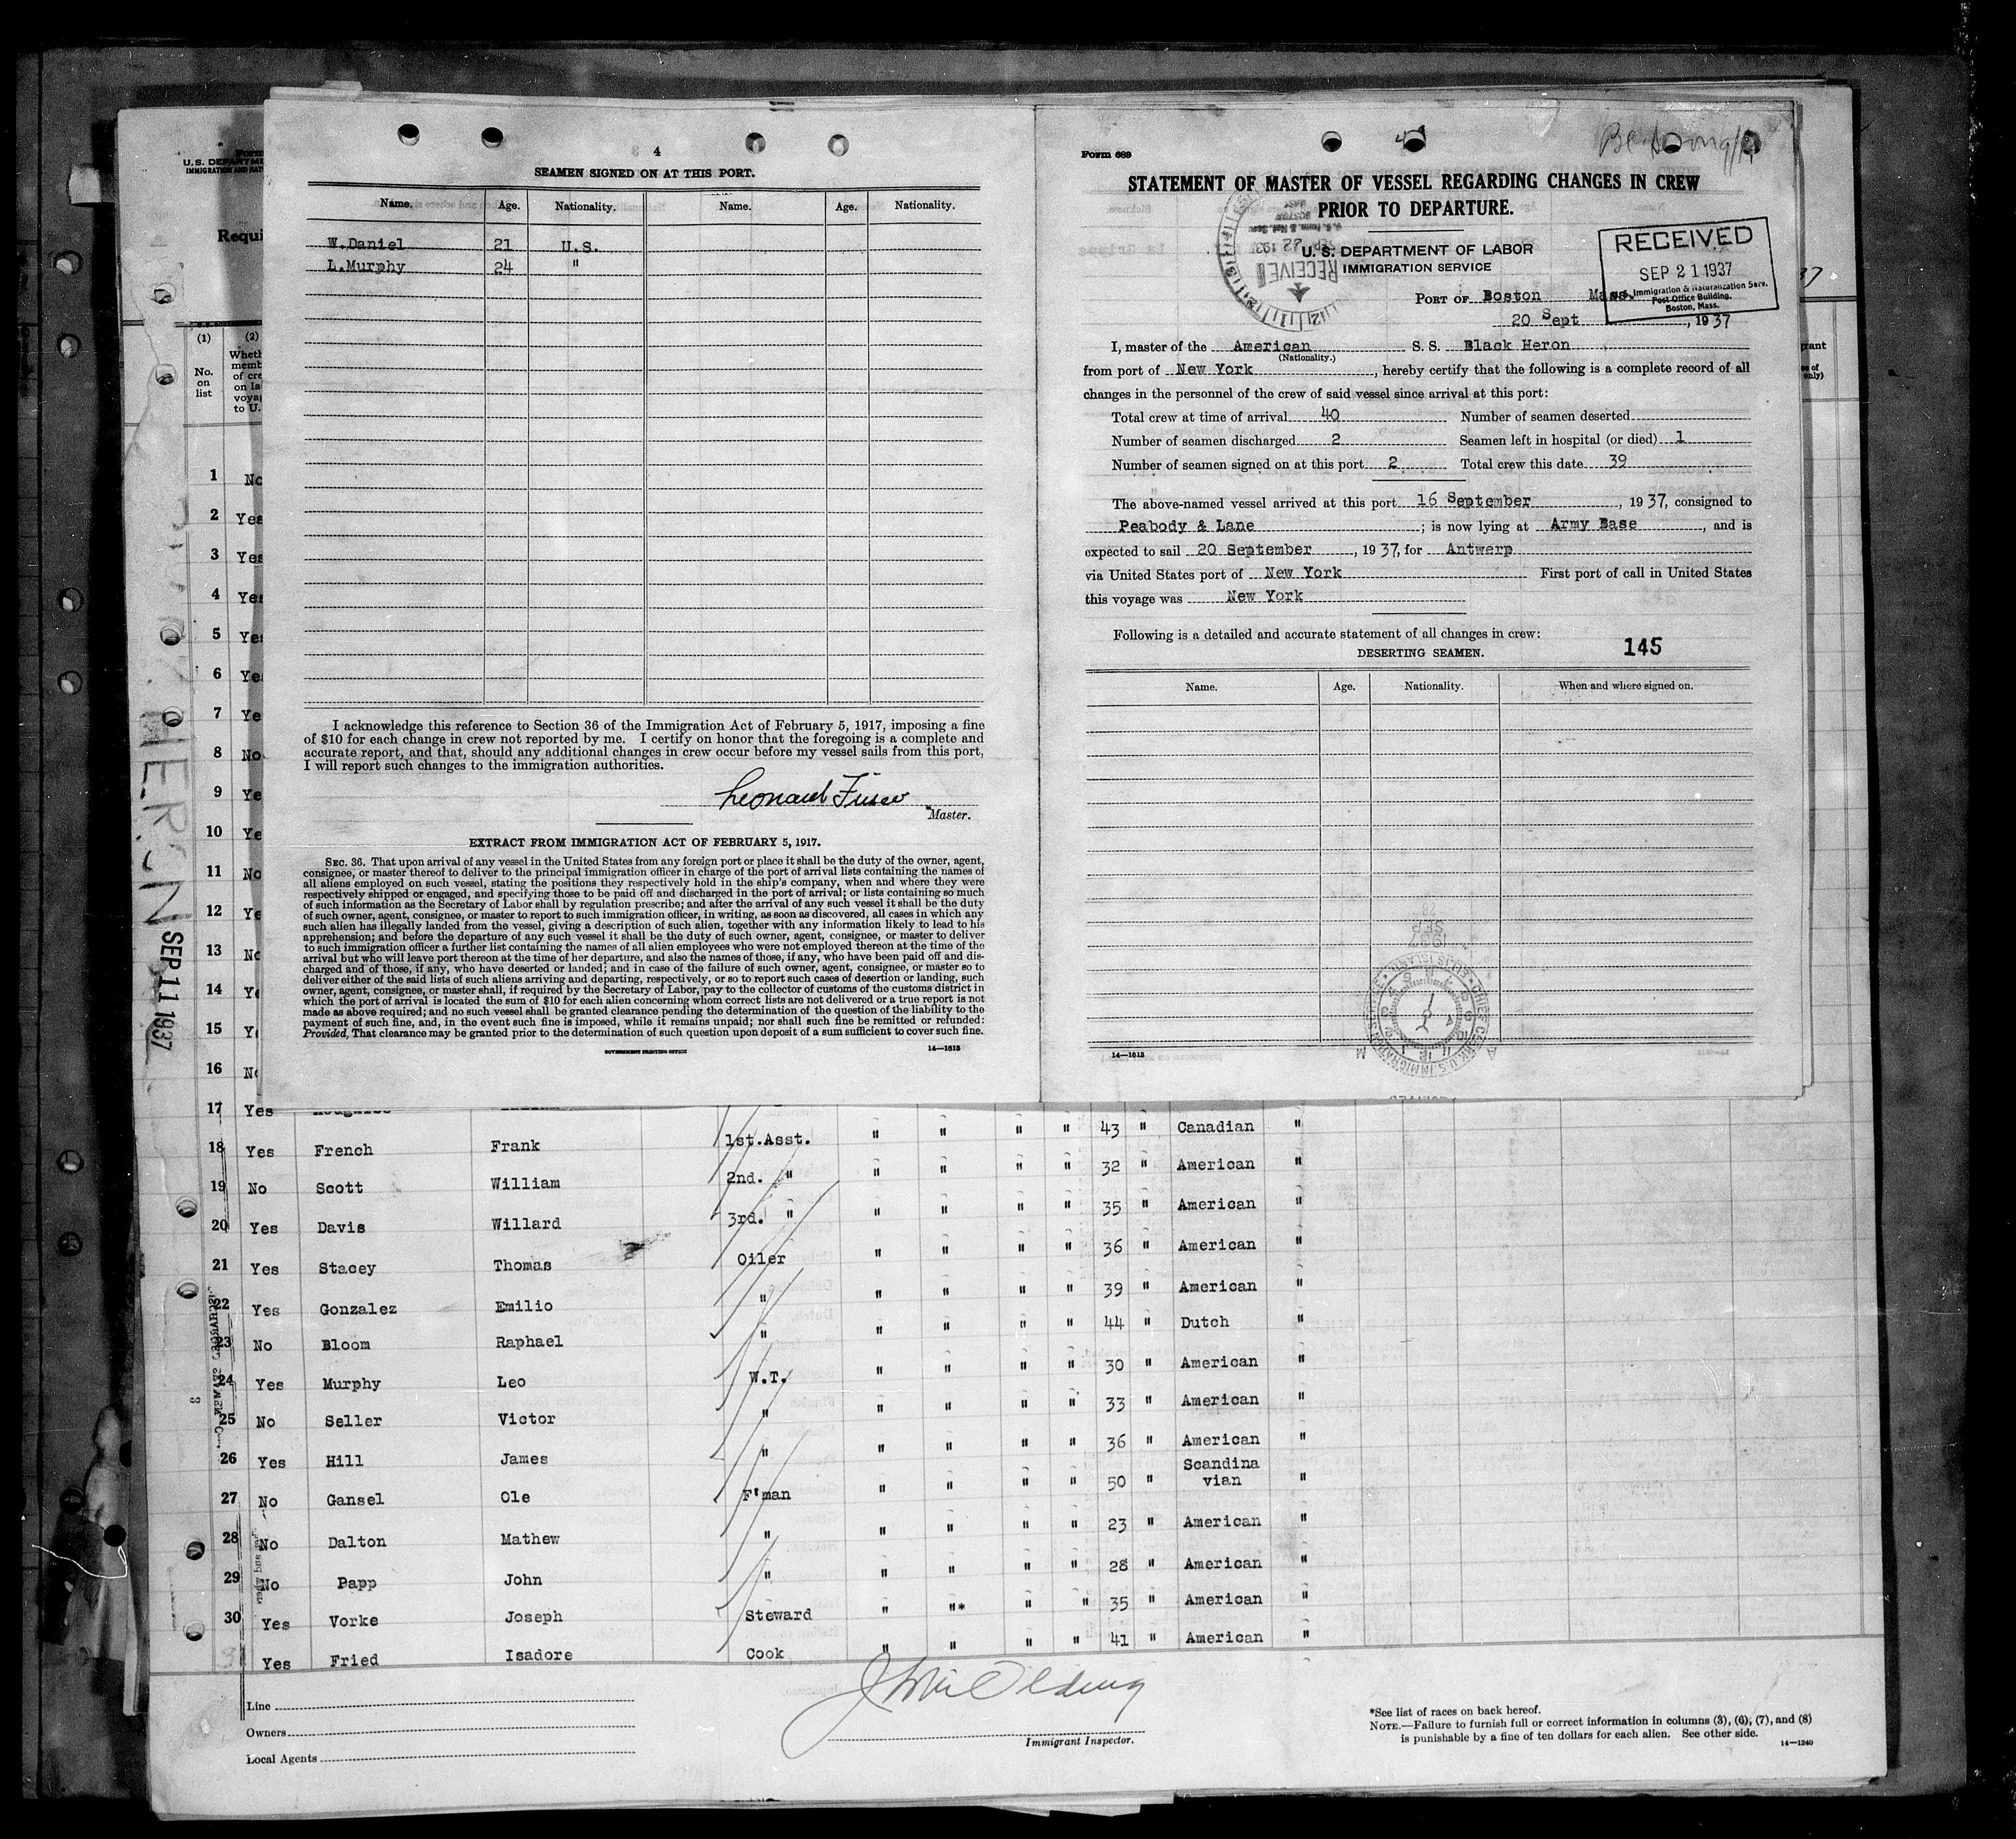 4
SEAMEN SIGNED ON AT THIS PORT.
Name. Age. Nationality. Name. Age. Nationality.
W.Daniel 21 U.S.
L.Murphy 24 "
I acknowledge this reference to Section 36 of the Immigration Act of February 5, 1917, imposing a fine
of $10 for each change in crew not reported by me. I certify on honor that the foregoing is a complete and
accurate report, and that, should any additional changes in crew occur before my vessel sails from this port,
I will report such changes to the immigration authorities.
Leonard
Master.
EXTRACT FROM IMMIGRATION ACT OF FEBRUARY 5, 1917.
SEC. 36. That upon arrival of any vessel in the United States from any foreign port or place it shall be the duty of the owner, agent,
consignee, or master thereof to deliver to the principal immigration officer in charge of the port of arrival lists containing the names of
all aliens employed on such vessel, stating the positions they respectively hold in the ship's company, when and where they were
respectively shipped or engaged, and specifying those to be paid off and discharged in the port of arrival; or lists containing so much
of such information as the Secretary of Labor shall by regulation prescribe; and after the arrival of any such vessel it shall be the duty
of such owner, agent, consignee, or master to report to such immigration officer, in writing, as soon as discovered, all cases in which any
such alien has illegally landed from the vessel, giving a description of such alien, together with any information likely to lead to his
apprehension; and before the departure of any such vessel it shall be the duty of such owner, agent, consignee, or master to deliver
to such immigration officer a further list containing the names of all alien employees who were not employed thereon at the time of the
arrival but who will leave port thereon at the time of her departure, and also the names of those, if any, who have been paid off and dis-
charged and of those, if any, who have deserted or landed; and in case of the failure of such owner, agent, consignee, or master so to
deliver either of the said lists of such aliens arriving and departing, respectively, or so to report such cases of desertion or landing, such
owner, agent, consignee, or master shall, if required by the Secretary of Labor, pay to the collector of customs of the customs district in
which the port of arrival is located the sum of $10 for each alien concerning whom correct lists are not delivered or a true report is not
made as above required; and no such vessel shall be granted clearance pending the determination of the question of the liability to the
payment of such fine, and, in the event such fine is imposed, while it remains unpaid; nor shall such fine be remitted or refunded:
Provided, That clearance may be granted prior to the determination of such question upon deposit of a sum sufficient to cover such fine.
GOVERNMENT PRINTING OFFICE 14—1613
Form 689
STATEMENT OF MASTER OF VESSEL REGARDING CHANGES IN CREW
PRIOR TO DEPARTURE.
U. S. DEPARTMENT OF LABOR
IMMIGRATION SERVICE
RECEIVED
SEP 21 1937
Immigration & Naturalization Serv.
Post Office Building,
Boston, Mass.
PORT OF Boston Mass.
20 Sept, 1937
I, master of the American S. S. Black Heron
(Nationality.)
from port of New York, hereby certify that the following is a complete record of all
changes in the personnel of the crew of said vessel since arrival at this port:
Total crew at time of arrival 40 Number of seamen deserted
Number of seamen discharged 2 Seamen left in hospital (or died) 1
Number of seamen signed on at this port 2 Total crew this date 39
The above-named vessel arrived at this port 16 September, 1937, consigned to
Peabody & Lane; is now lying at Army Base, and is
expected to sail 20 September, 1937, for Antwerp
via United States port of New York First port of call in United States
this voyage was New York
Following is a detailed and accurate statement of all changes in crew:
145
DESERTING SEAMEN.
Name. Age. Nationality. When and where signed on.
14—1613
Form
U. S. DEPARTME
IMMIGRATION AND NAT
Requi
(1) (2)
No. on list
Wheth
memb
of cre
on la
voyag
to U.
1 No
2 Yes
3 Yes
4 Yes
5 Yes
6 Yes
7 Yes
8 No
9 Ye
10 Ye
11 No
12 Ye
13 No
14 Ye
15 Ye
16 No
SEP 11 1937
17 Yes
18 Yes French Frank 1st.Asst. " " " " 43 " Canadian "
19 No Scott William 2nd. " " " " " 32 " American "
20 Yes Davis Willard 3rd. " " " " " 35 " American "
21 Yes Stacey Thomas Oiler " " " " 36 " American "
22 Yes Gonzalez Emilio " " " " " 39 " American "
23 No Bloom Raphael " " " " " 44 " Dutch "
24 Yes Murphy Leo W.T. " " " " 30 " American "
25 No Seller Victor " " " " " 33 " American "
26 Yes Hill James " " " " " 36 " American "
27 No Gansel Ole F'man " " " " 50 " Scandina
vian "
28 No Dalton Mathew " " " " " 23 " American "
29 No Papp John " " " " " 28 " American "
30 Yes Vorke Joseph Steward " "* " " 35 " American "
Yes Fried Isadore Cook " " " " 41 " American "
Line
Owners
Local Agents
Immigrant Inspector.
*See list of races on back hereof.
NOTE.—Failure to furnish full or correct information in columns (3), (6), (7), and (8)
is punishable by a fine of ten dollars for each alien. See other side.
14—1240